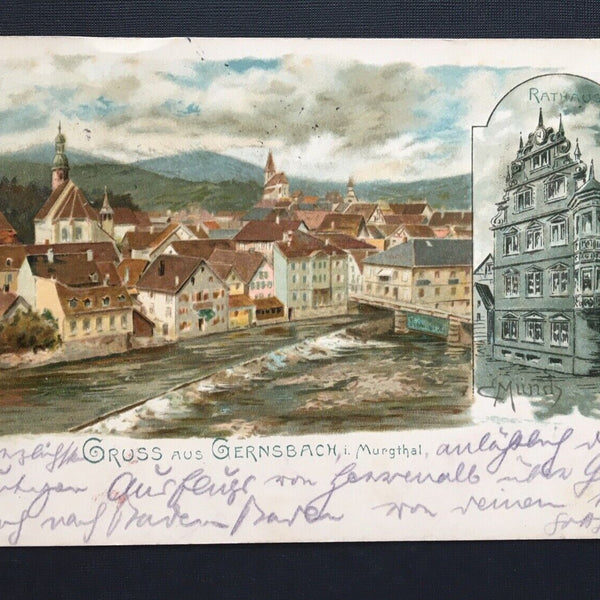 RATHAUS
C Münch
GRUSS AUS GERNSBACH, i. Murgthal, anläßlich
Ausflugs von Herrenalb über
nach Baden Baden von deinem